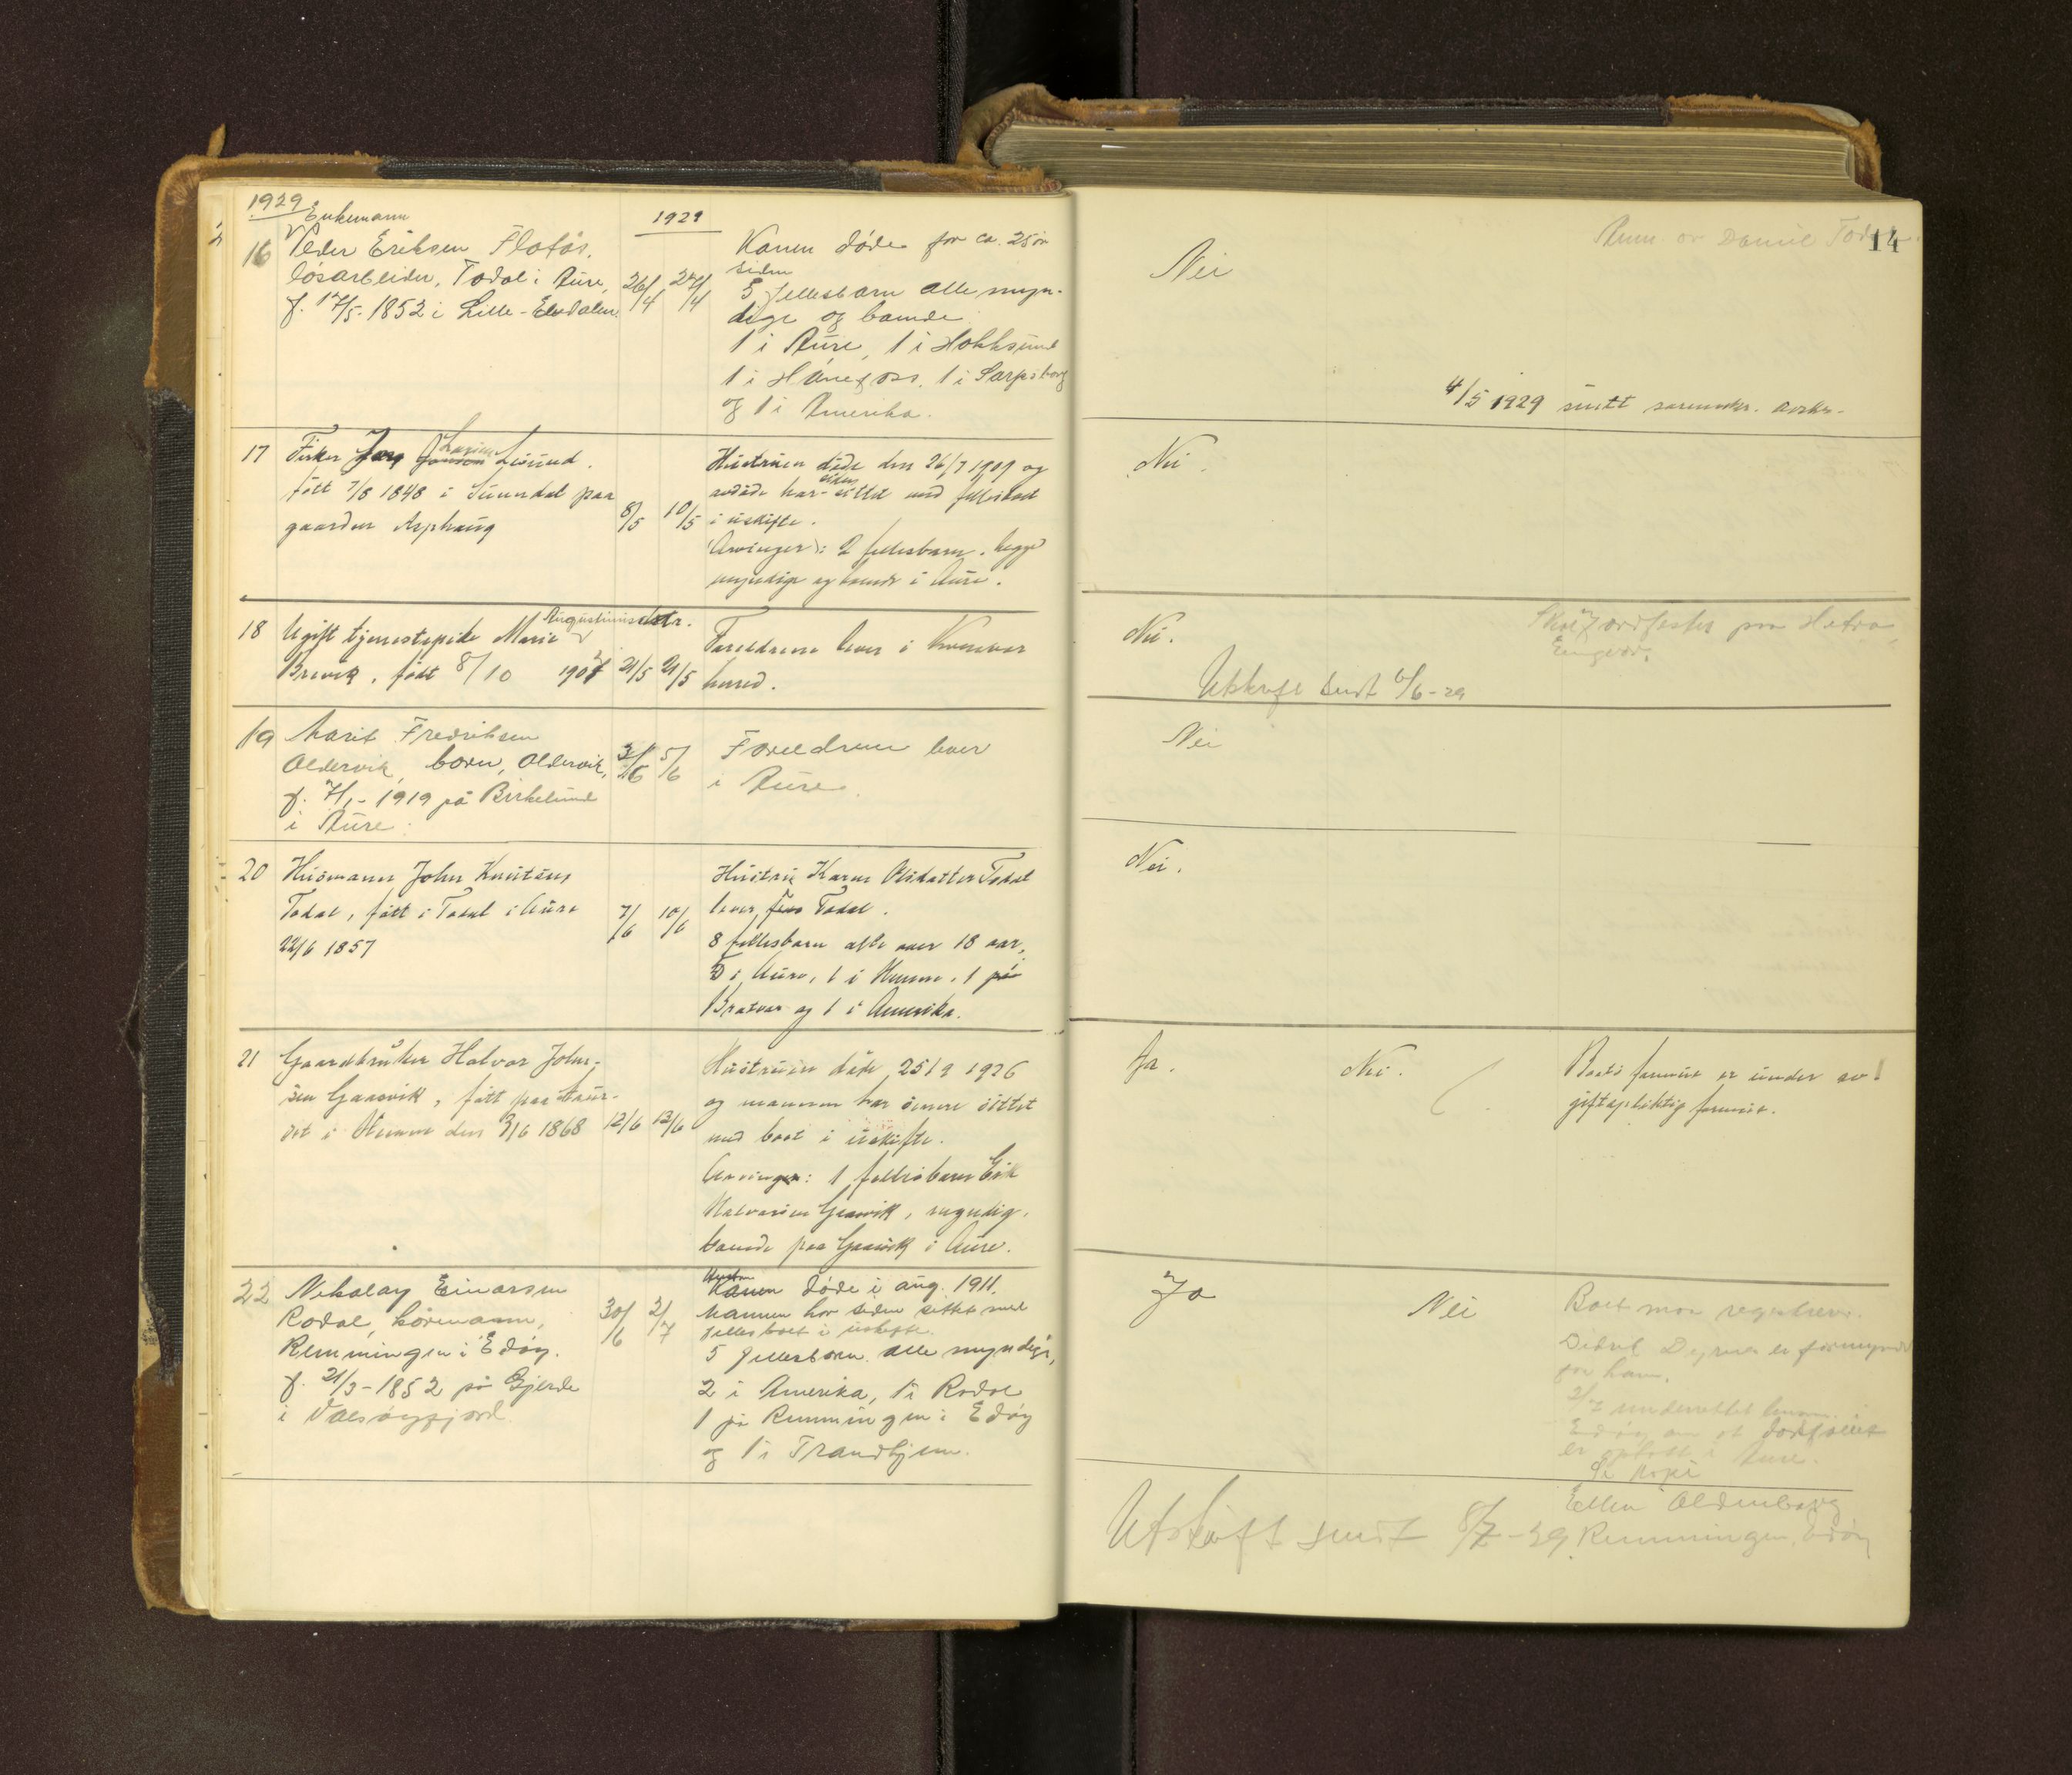 1929
Enkemann
1929
16 Peder Eriksen Flatås.
løsarbeider, Todal i Aure,
f. 17/5-1852 i Lille-Elvdalen
26/4 27/4
Konen døde for ca. 25 år
siden
5 fellesbarn alle myn-
dige og boende
1 i Aure, 1 i Hokksund
1 i Hønefoss, 1 i Sarpsborg
og 1 i Amerika.
Nei
Anm. av Daniel Todal.
14
4/5 1929 sendt
17 Fisker Lars Larsen Lesund.
født 7/8 1848 i Sunndal paa
gaarden Asphaug
8/5 10/5
Hustruen døde den 26/7 1909 og
avdøde har siden sittet med fellesboet
i uskifte.
Arvinger: 2 fellesbarn, begge
myndige og boende i Aure.
Nei.
18 Ugift tjenestepike Marie Augustinusdatr.
Brevik, født 8/10 1907
21/5 21/5
Foreldrene lever i Kornstad
herred.
Nei.
Utskrift sendt 6/6-29
19 Marit Fredriksen
Oldervik, barn, Oldervik,
f. 7/1-1919 på Birkelund
i Aure.
3/6 5/6
Foreldrene lever
i Aure.
Nei
20 Husmann John Knutsen
Todal, født i Todal i Aure
22/6 1857
7/6 10/6
Hustru Karen Olsdatter Todal
lever, Todal.
8 fellesbarn alle over 18 aar,
5 i Aure, 1 i Hemne, 1 på
Bratvær og 1 i Amerika.
Nei.
21 Gaardbruker Halvor John-
sen Gaasvik, født paa
i Hemne den 3/6 1868
12/6 13/6
Hustruen døde 25/9 1926
og mannen har senere sittet
med boet i uskifte.
Arvinger: 1 fellesbarn Erik
Halvorsen Gaasvik, myndig,
boende paa Gaasvik i Aure.
Ja.
Nei.
Boets formue er under av-
giftspliktig formue.
22 Nikolay Einarsen
Rodal, kårmann,
Remmingen i Edøy.
f. 21/3-1852 på Gjerde
i Valsøyfjord.
30/6 2/7
Hustru
Konen døde i aug. 1911.
Mannen har siden sittet med
fellesboet i uskifte.
5 fellesbarn alle myndige,
2 i Amerika, 1 i Rodal
1 på Remmingen i Edøy
og 1 i Trondhjem.
Ja
Nei
Boet maa registreres.
Didrik Dyrnes er formynder
for ham.
2/7 underrettet
Edøy om at dødsfallet
er oplest i Aure.
Se kopi
Ellen Oldenborg
Remmingen, Edøy
Utskrift sendt 8/7-29